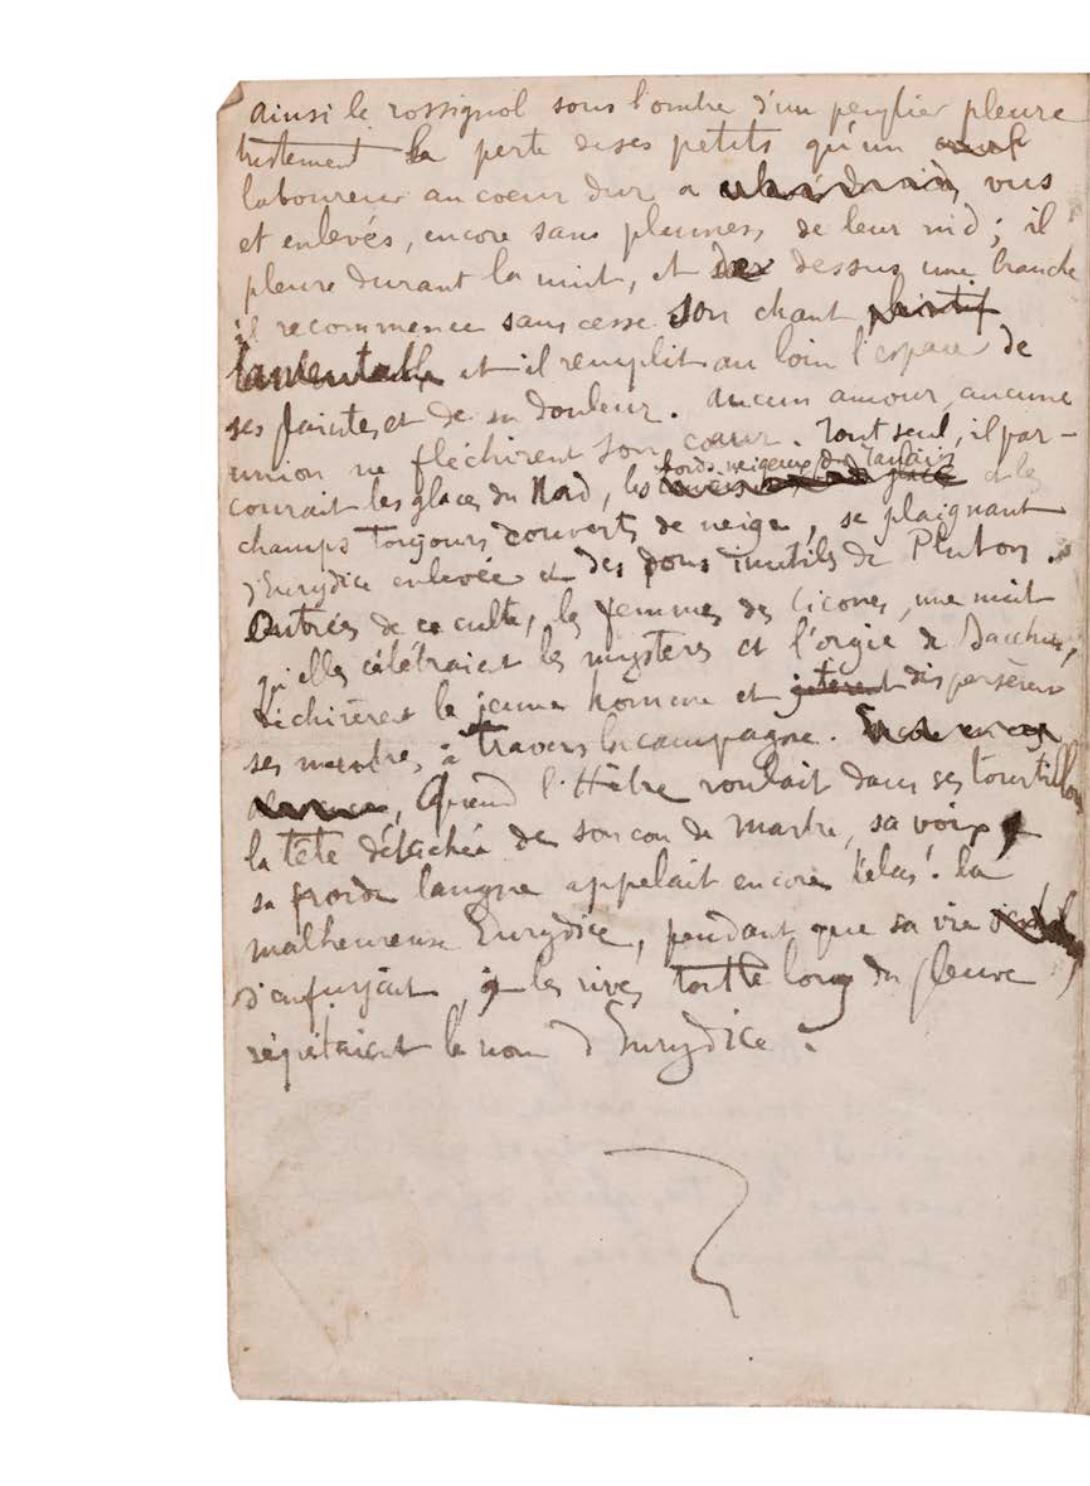 ainsi le rossignol sous l'ombre d'un peuplier pleure
tristement la perte de ses petits qu'un
laboureur au coeur dur a vus
et enlevés, encore sans plumes, de leur nid ; il
pleure durant la nuit, et dessus une branche
il recommence sans cesse son chant plaintif
lamentable et il remplit au loin l'espace de
ses plaintes et de sa douleur. Aucun amour, aucune
union ne fléchirent son coeur. Tout seul, il par-
bords neigeux du Tanaïs
courait les glaces du Nord, les glace et les
champs toujours couverts de neige, se plaignant
d'Eurydice enlevée et des dons inutils de Pluton.
Outrées de ce culte, les femmes des Cicones, une nuit
qu'elles célébraient les mystères et l'orgie de Bacchus,
déchirèrent le jeune homme et jetèrent dispersèrent
ses membres à travers la campagne.
Quand l'Hèbre roulait dans ses tourbillons
la tête détachée de son cou de marbre, sa voix
sa froide langue appelait encore hélas ! la
malheureuse Eurydice, pendant que sa vie
s'enfuyait, les rives tout le long du fleuve
répétaient le nom d'Eurydice